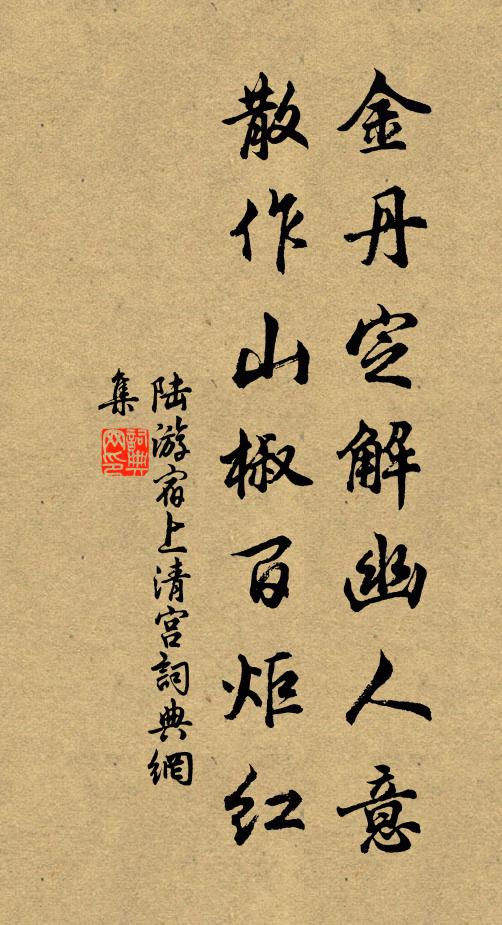 金丹定解幽人意
散作山椒百炬红
陆游宿上清宫詞典網
集
詞典网印